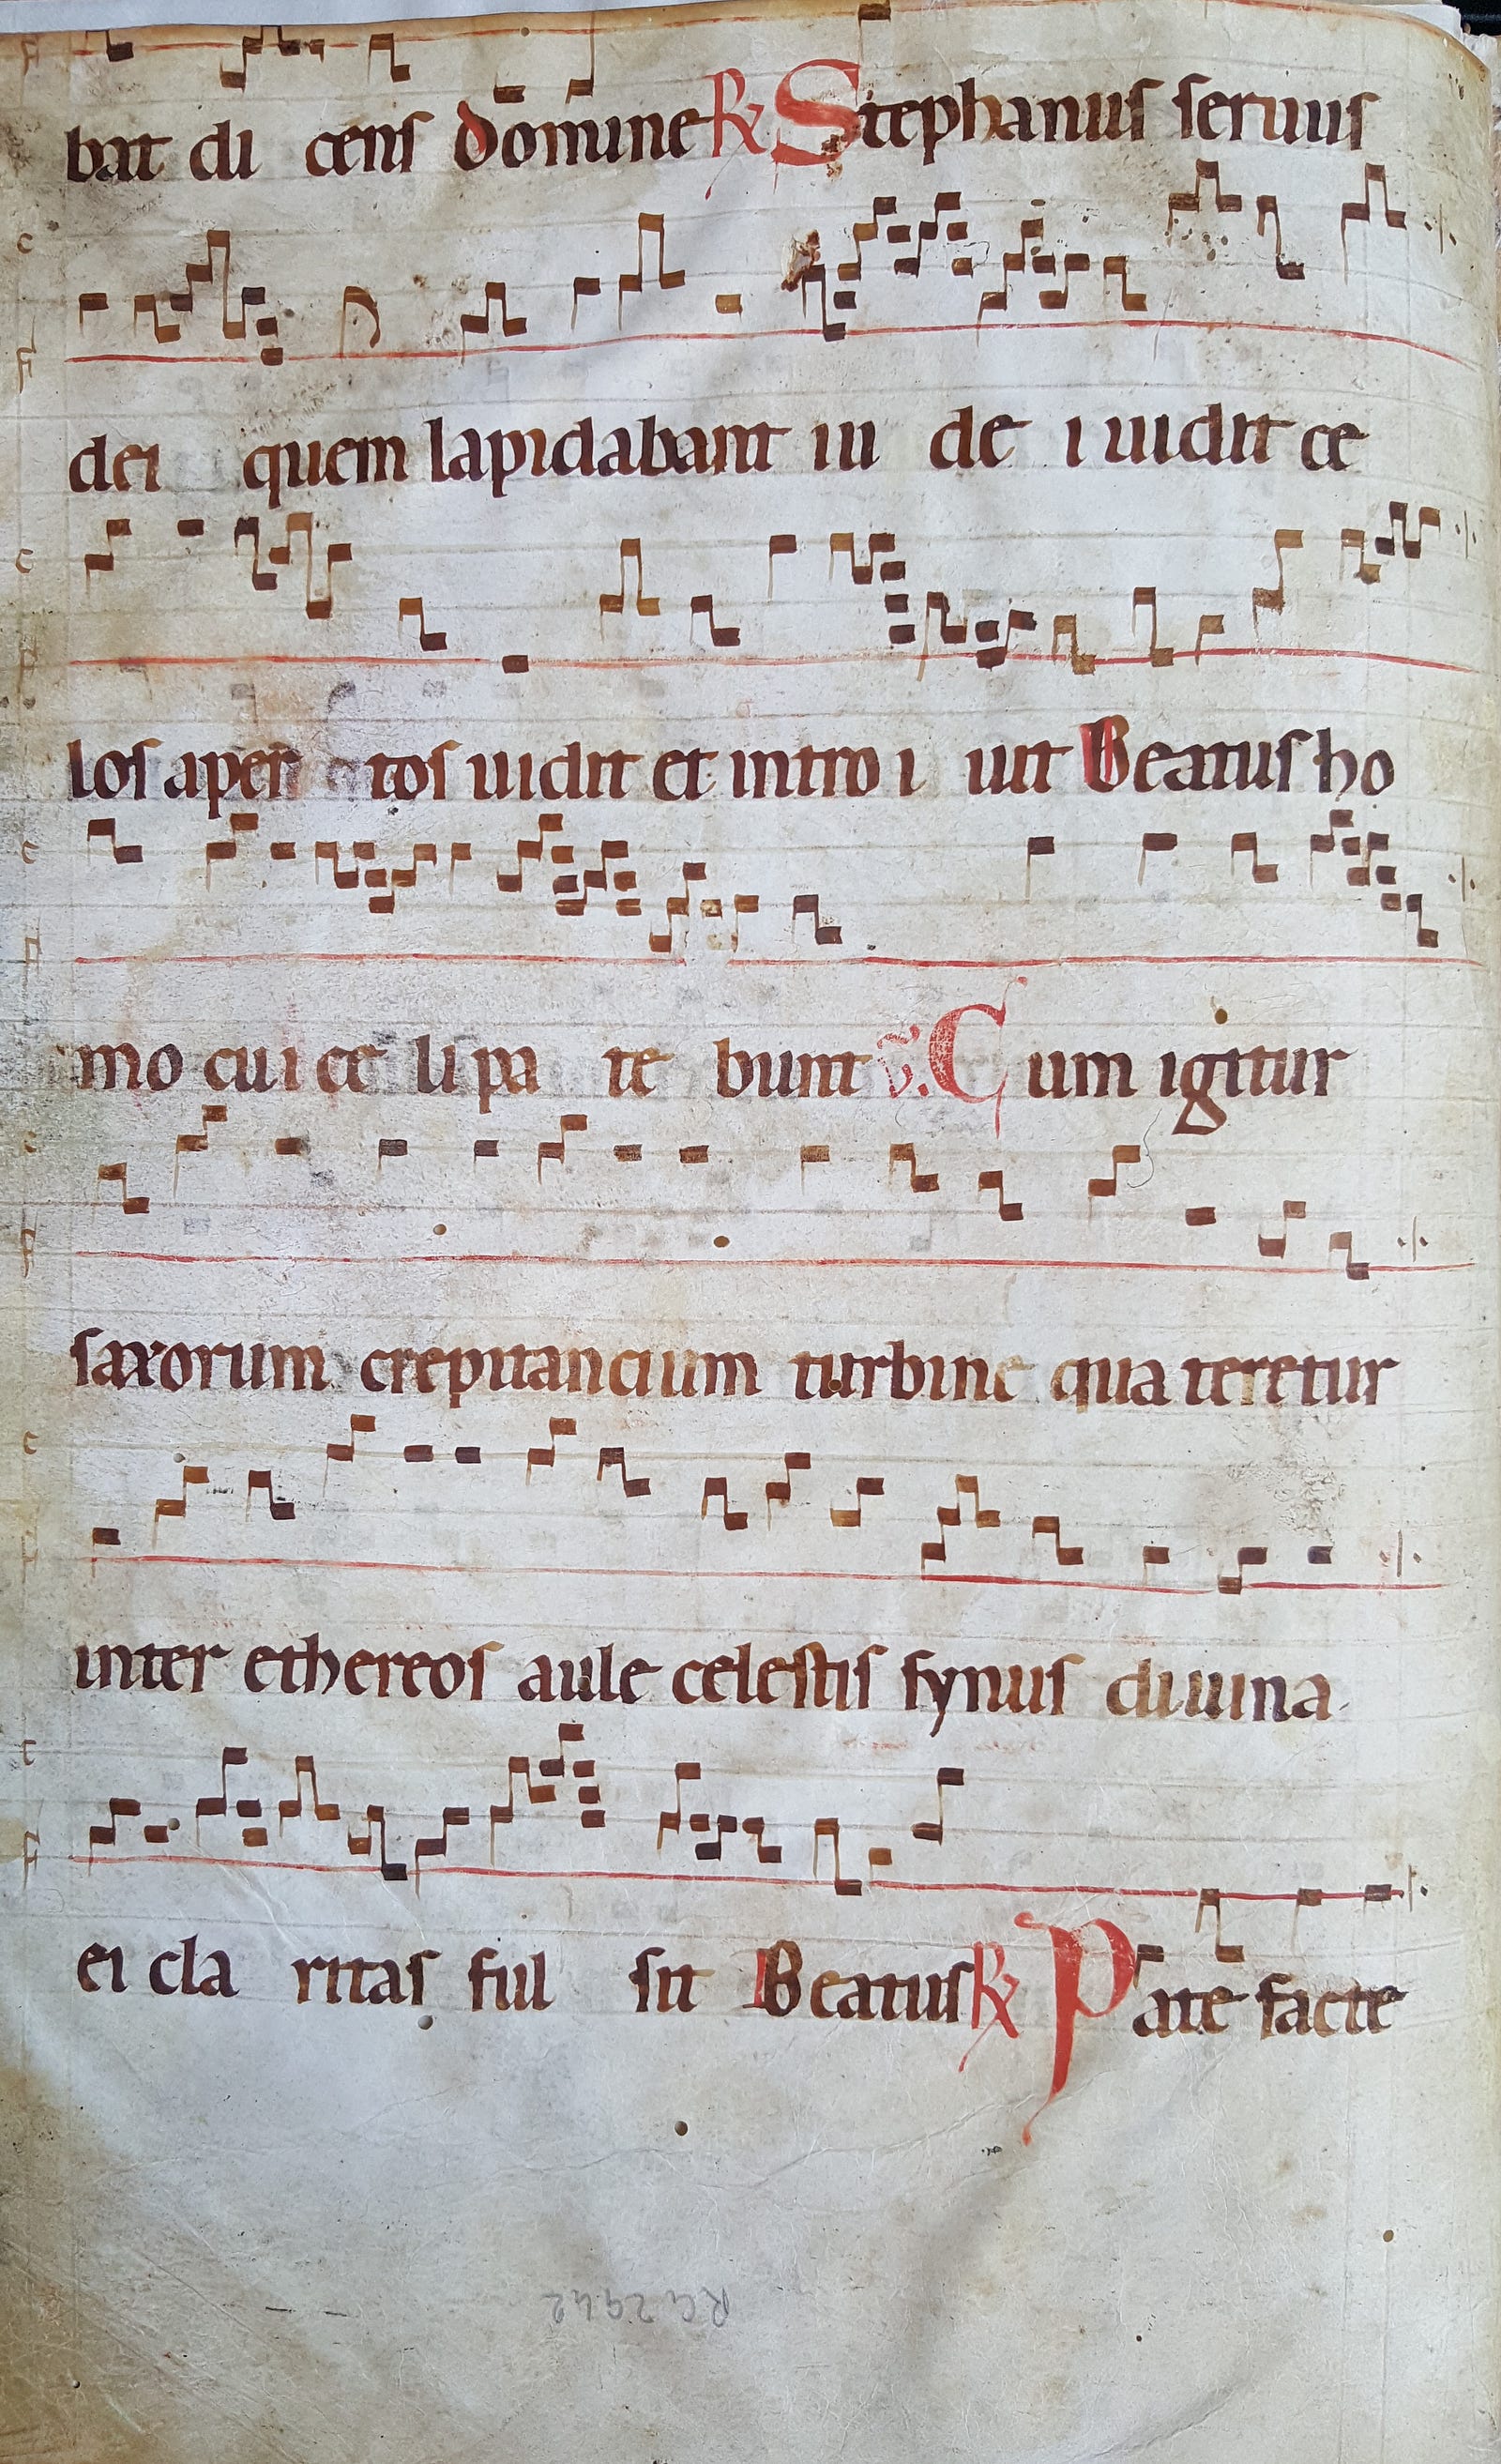 bat di cens domine R Stephanus seruus
dei quem lapidabant iu de i uidit ce
los aper tos uidit et intro i uit Beatus ho
mo cui ce li pa te bunt V. Cum igitur
saxorum crepitancium turbine qua teretur
inter ethereos aule celestis synus diuina
ei cla ritas ful sit Beatus R Pate facte
RG 2942